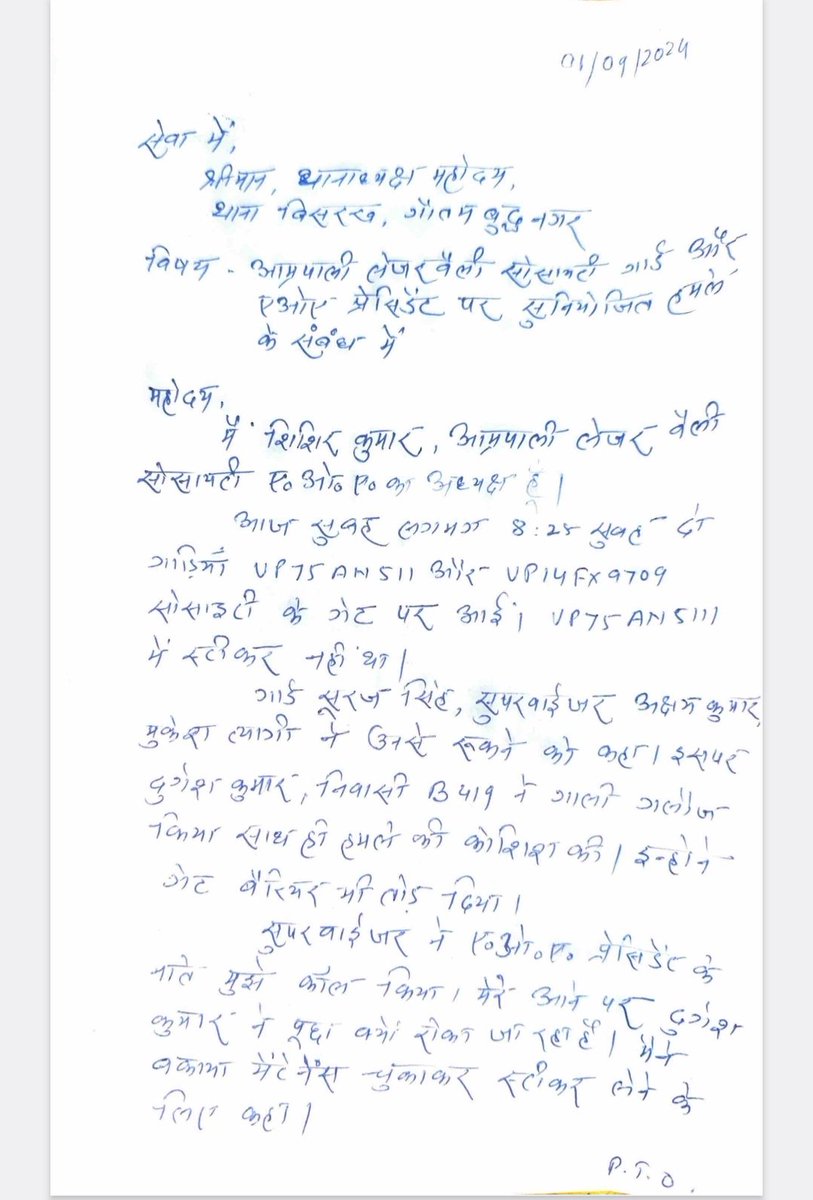 01/09/2024
सेवा में,
श्रीमान, थानाध्यक्ष महोदय,
थाना बिसरख, गौतम बुद्ध नगर
विषय - आम्रपाली लेजर वैली सोसायटी गार्ड और
एओए प्रेसिडेंट पर सुनियोजित हमले
के संबंध में
महोदय,
मैं शिशिर कुमार, आम्रपाली लेजर वैली
सोसायटी ए०ओ०ए० का अध्यक्ष हूं।
आज सुबह लगभग 8:25 सुबह दो
गाड़ियाँ UP75AN511 और UP14FX9709
सोसाइटी के गेट पर आई। UP75AN5111
में स्टीकर नहीं था।
गार्ड सूरज सिंह, सुपरवाईजर अक्षय कुमार,
मुकेश त्यागी ने उसे रूकने को कहा। इसपर
दुर्गेश कुमार, निवासी B419 ने गाली गलौज
किया साथ ही हमले की कोशिश की। इन्होने
गेट बैरियर भी तोड़ दिया।
सुपरवाईजर ने ए०ओ०ए० प्रेसिडेंट के
नाते मुझे कॉल किया। मेरे आने पर दुर्गेश
कुमार ने पूछा क्यों रोका जा रहा है। मैंने
बकाया मेंटेनेंस चुकाकर स्टीकर लेने के
लिए कहा।
P.T.O.